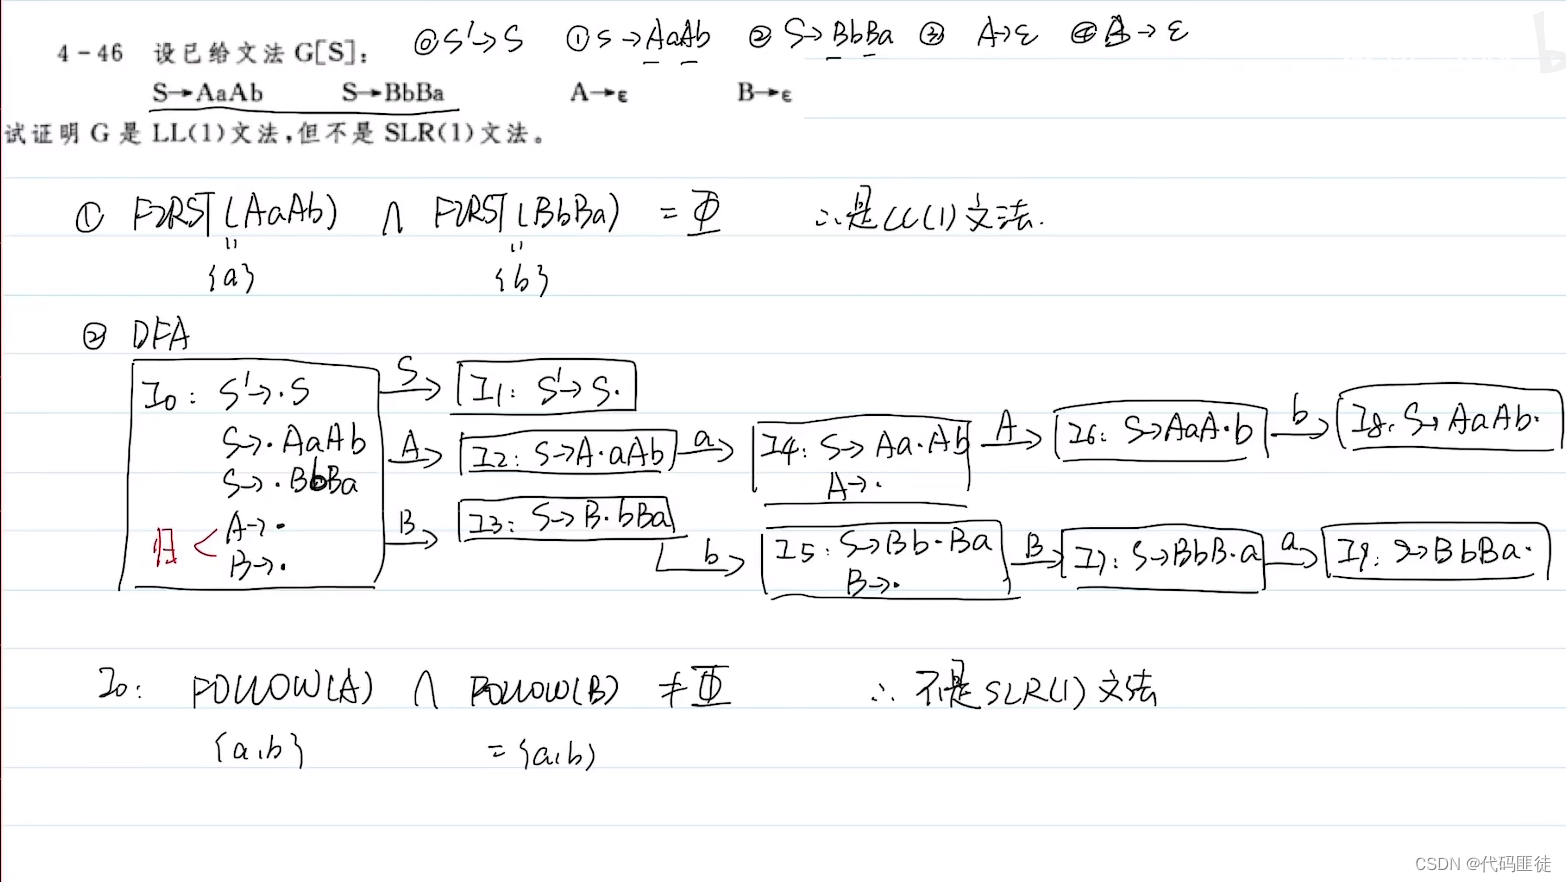 4-46 设已给文法 G[S]： ⓪ S'→S ① S→AaAb ② S→BbBa ③ A→ε ④ B→ε
S→AaAb S→BbBa A→ε B→ε
试证明 G 是 LL(1)文法,但不是 SLR(1)文法。
① FIRST(AaAb) ∩ FIRST(BbBa) = Φ ∴是LL(1)文法.
{a} {b}
② DFA
I0: S'→.S
S→.AaAb
S→.BbBa
归 < A→.
B→.
S I1: S'→S.
A I2: S→A.aAb a I4: S→Aa.Ab A I6: S→AaA.b b I8: S→AaAb.
A→.
B I3: S→B.bBa b I5: S→Bb.Ba B I7: S→BbB.a a I9: S→BbBa.
B→.
I0: FOLLOW(A) ∩ FOLLOW(B) ≠ Φ ∴ 不是SLR(1)文法
{a,b} = {a,b}
CSDN @代码匪徒